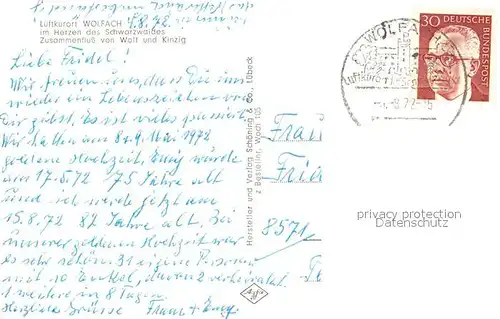 4.8.72.
Luftkurort WOLFACH
im Herzen des Schwarzwaldes
Zusammenfluß von Wolf und Kinzig
Liebe Fridel!
Wir freuen uns, dass Du uns
wieder ein Lebenszeichen von
Dir gibst. Es ist vieles passiert
Wir hatten am 8 u 9. Mai 1972
goldene Hochzeit, Emy wurde
am 17.5.72 75 Jahre alt
und ich werde jetzt am
15.8.72 82 Jahre alt. Bei
unserer goldenen Hochzeit war
es sehr schön. 31 eigene Personen
mit 10 Enkel, davon 2 verheiratet.
1 weitere in 8 Tagen.
Herzliche Grüsse Franz + Emy.
Hersteller und Verlag Schöning & Co., Lübeck
z Bestellnr. Wach 105
30 DEUTSCHE
BUNDESPOST
WOLFA
8.72-15
Frau
8571
privacy protection
Datenschutz